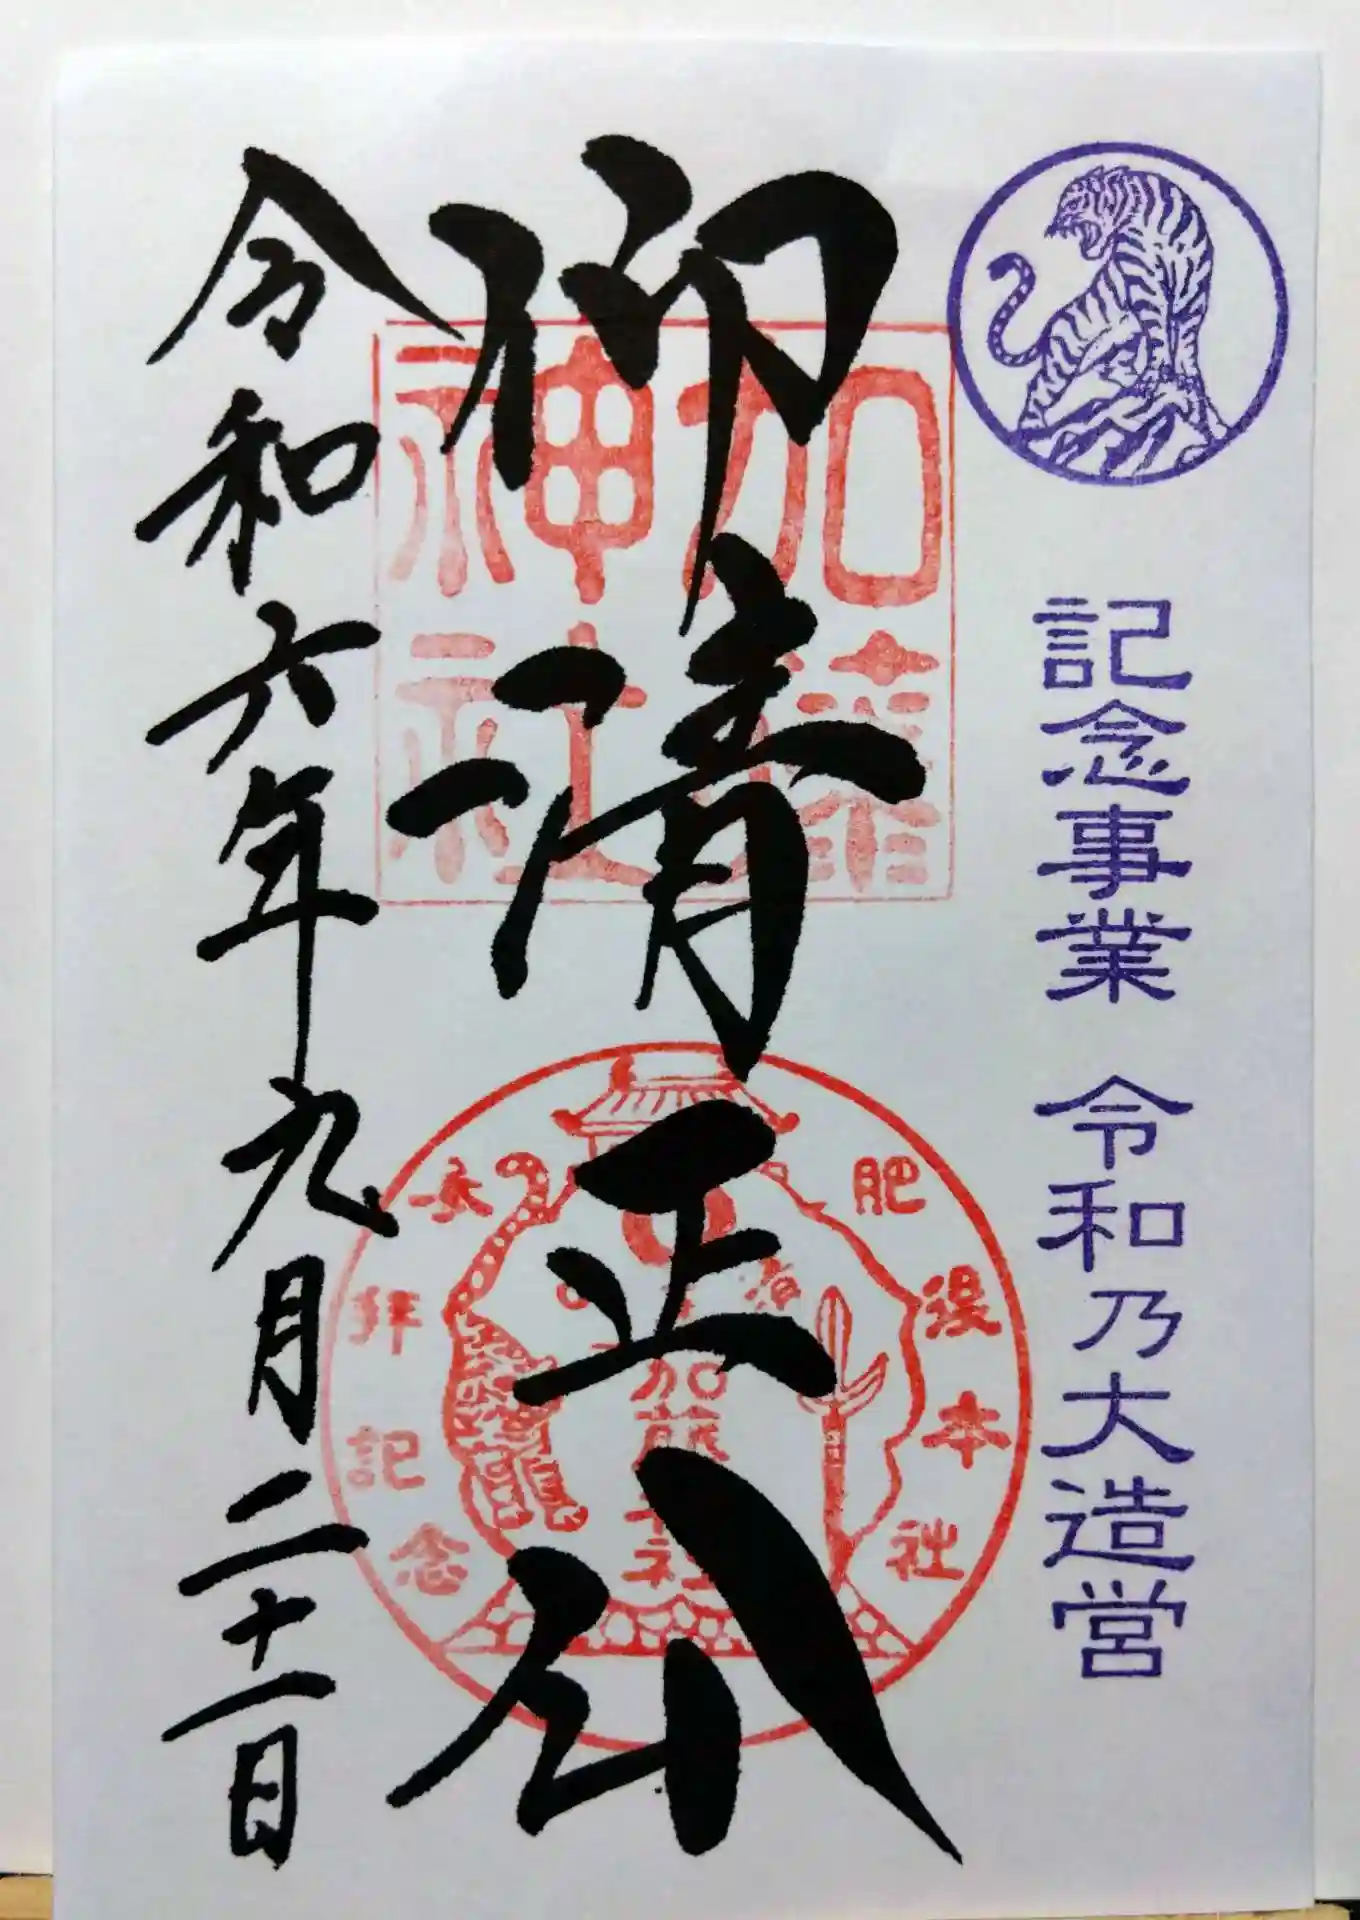 記念事業 令和乃大造営
仰清正公
加藤
神社
肥後本社
加藤神社
参拝記念
令和六年九月二十一日